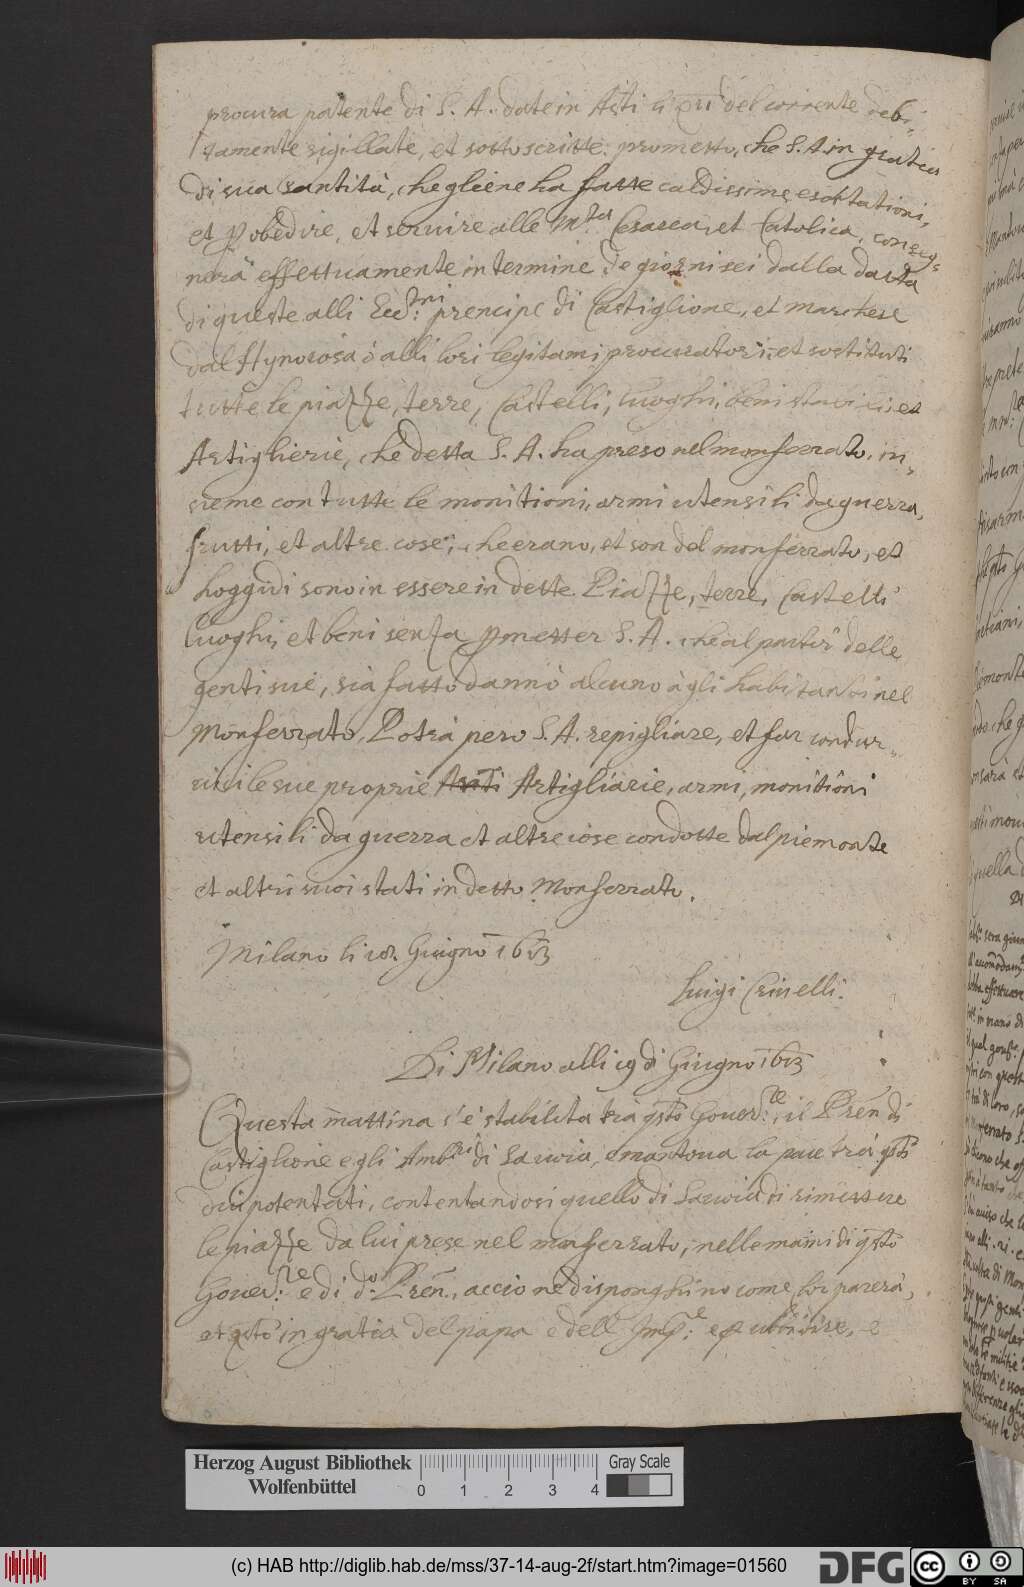 procura patente di S. A. date in Asti li XVI del corrente debi-
tamente sigillate, et sottoscritte: prometto, che S. A. in gratia
di sua santità, che gliene ha fatte caldissime esortationi,
et p obedire, et servire alle M.ta Cesarea, et Catolica, conseg-
nerà effettuamente in termine de giorni sei dalla datta
di queste alli Ecc.mi prencipe di Castiglione, et Marchese
dal Hynoiosa ò alli lori legitami procuratori; et sostituti
tutte le piazze, terre, Castelli, luoghi, beni stabili et
Artiglierie, che detta S. A. ha preso nel monferrato, in-
sieme con tutte le monitioni, armi utensili da guerra,
frutti, et altre cose, che erano, et son del monferrato, et
hoggidi sono in essere in dette Piazze, terre, Castelli
luoghi, et beni senza pmetter S. A. che al partir delle
genti sue, sia fatto danno alcuno à gli habitanti nel
Monferrato, Potrà pero S. A. repigliare, et far condur-
le sue proprie Artigliarie, armi, monitioni
utensili da guerra et altre cose condotte dal piemonte
et altri suoi stati in detto Monferrato.
Milano li 18. Giugno 1613
Luigi Crivelli.
Di Milano alli 19 di Giugno 1613
Questa mattina s'è stabilita tra qsto Gover.re, il Pren di
Castiglione e gli Amb.ri di Savoia, e mantova la pace trà qsti
dui potentati, contentandosi quello di Savoia di rimettere
le piazze da lui prese nel monferrato, nelle mani di qsto
Gover.re e di d.o Pren., acciò ne disponghino come lor parerà,
et qsto in gratia del papa e dell' Imp.re e p ubidire, e
Herzog August Bibliothek
Wolfenbüttel
0 1 2 3 4
Gray Scale
(c) HAB http://diglib.hab.de/mss/37-14-aug-2f/start.htm?image=01560
DFG
CC BY SA